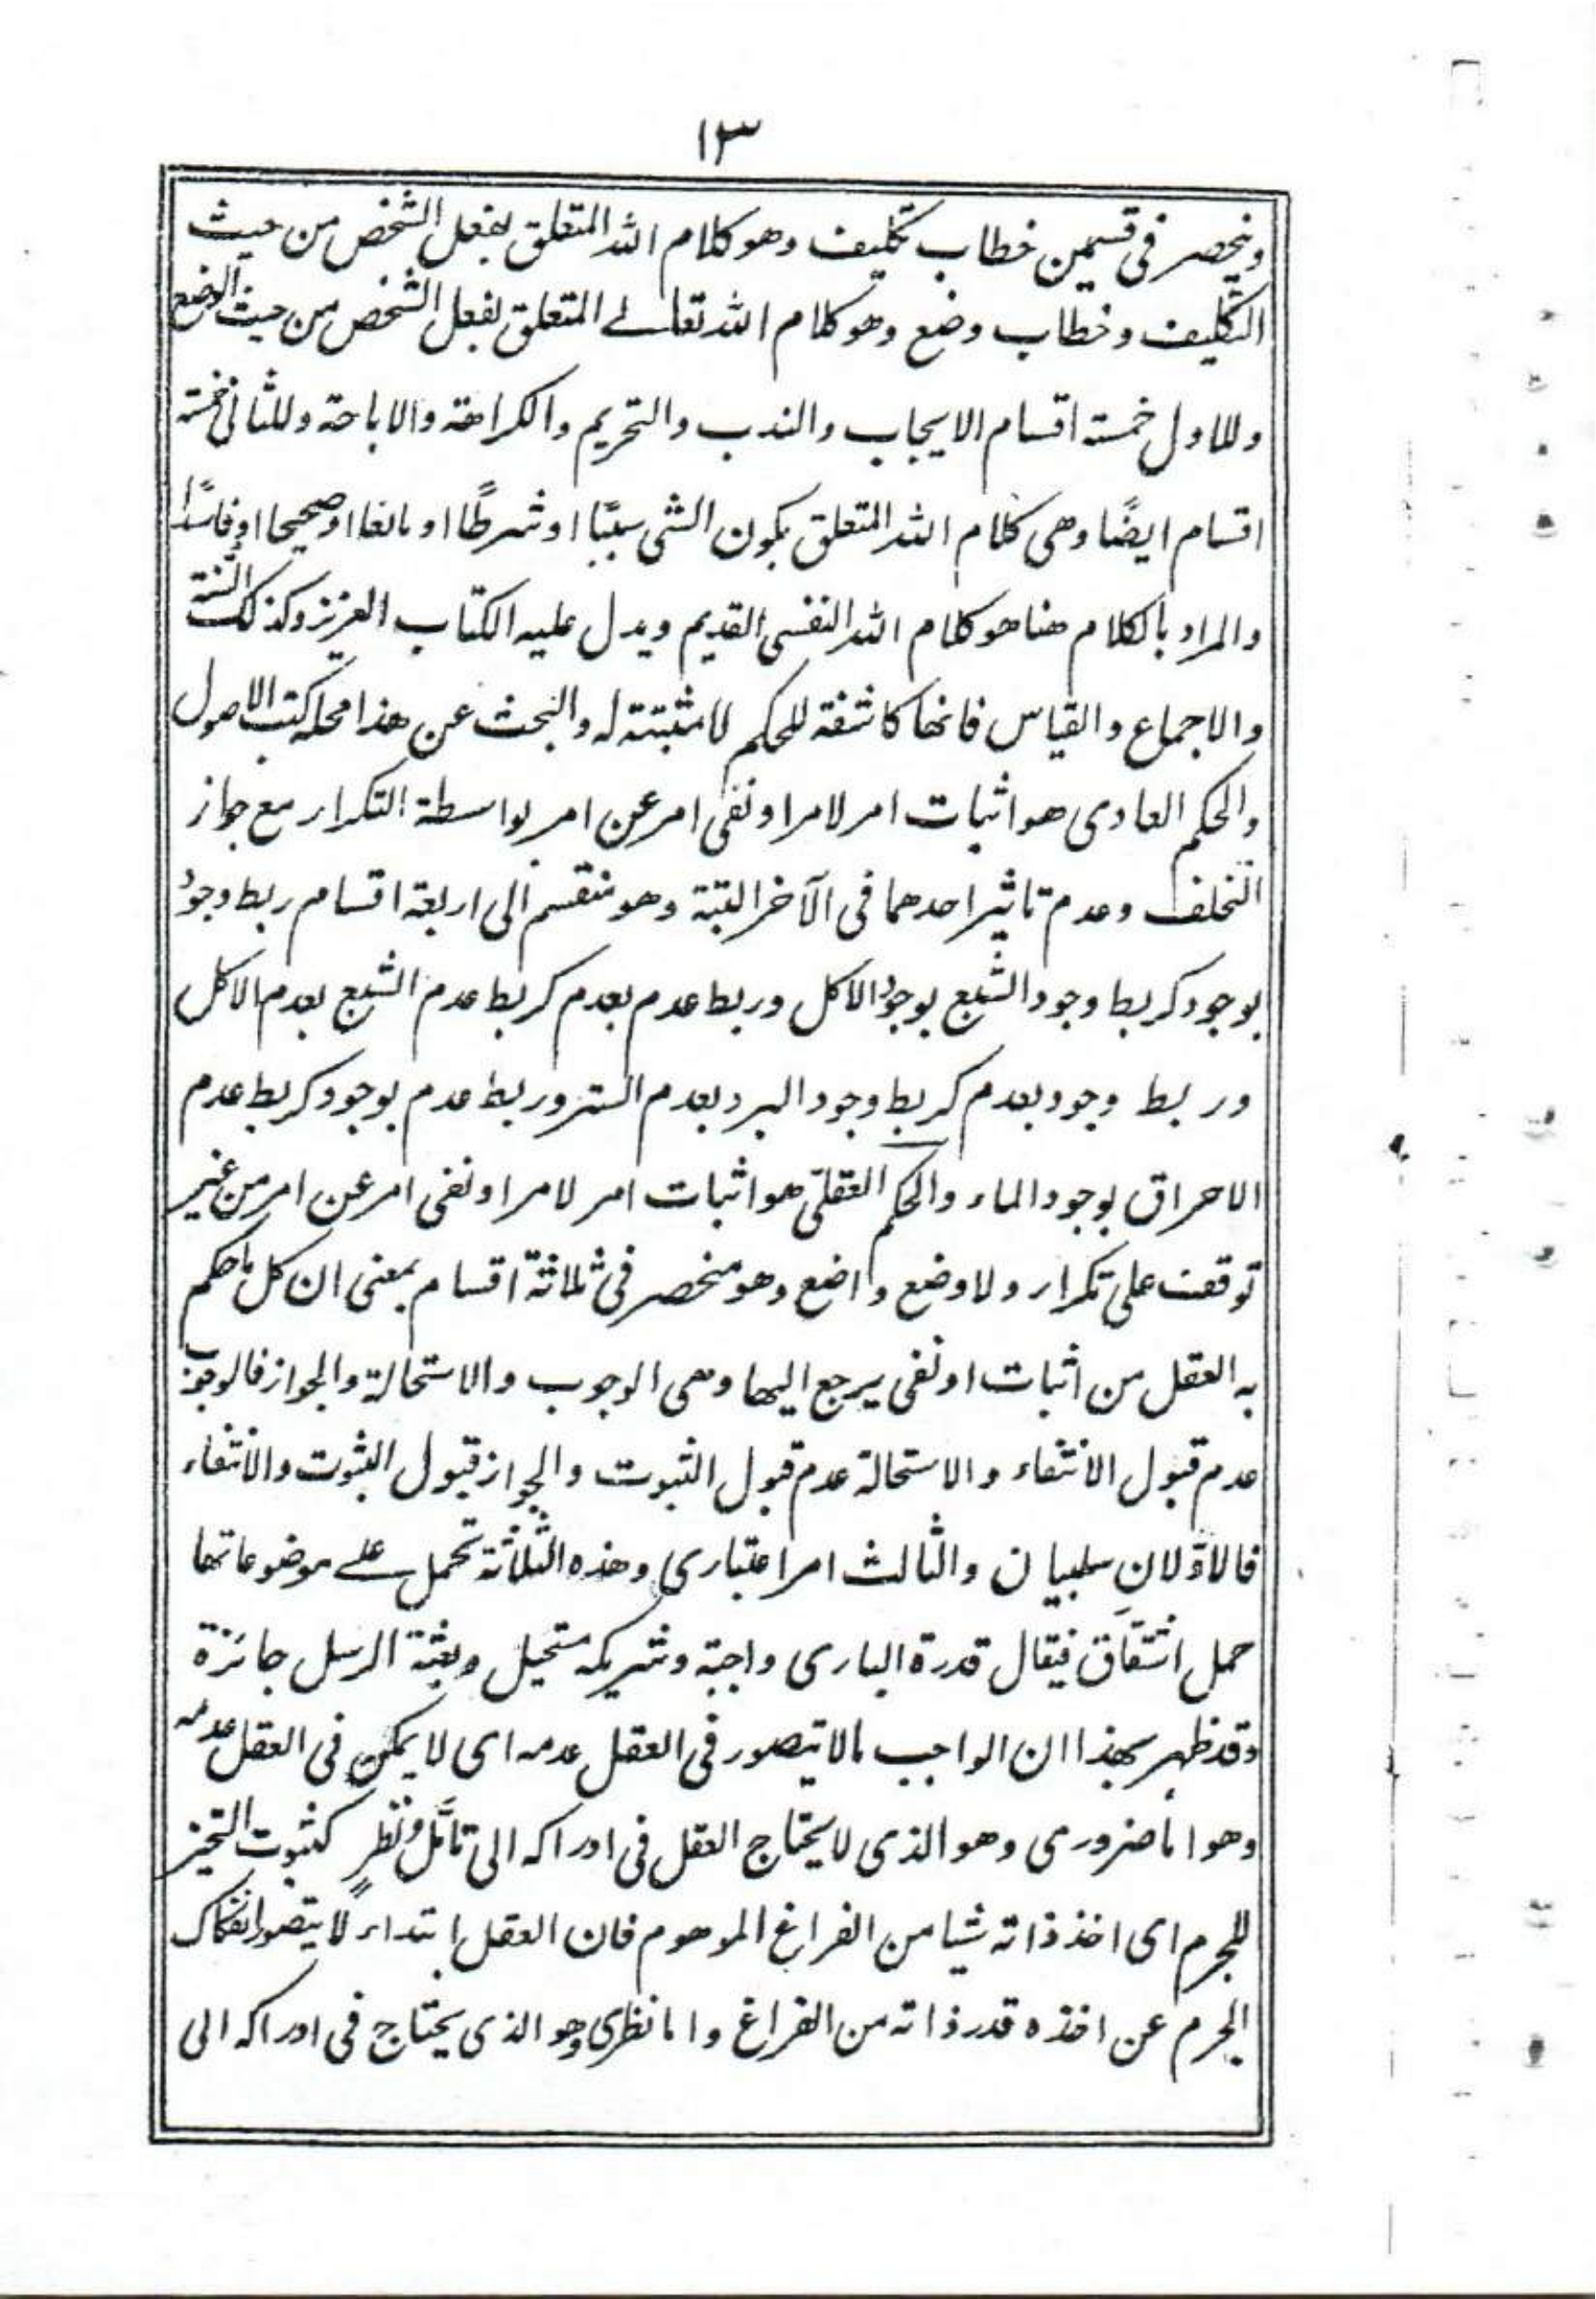 ١٣
وينحصر فى قسمين خطاب تكليف وهو كلام الله المتعلق بفعل الشخص من حيث
التكليف وخطاب وضع وهو كلام الله تعالے المتعلق بفعل الشخص من حيث الوضع
وللاول خمسة اقسام الايجاب والندب والتحريم والكراهة والاباحة وللثانى خمسة
اقسام ايضًا وهى كلام الله المتعلق بكون الشى سببًا او شرطًا او مانعا او صحيحا او فاسدًا
والمراد بالكلام هنا هو كلام الله النفسى القديم ويدل عليه الكتاب العزيز وكذلك السّنة
والاجماع والقياس فانها كاشفة للحكم لا مثبتة له والبحث عن هذا محله كتب الاصول
والحكم العادى هو اثبات امر لامر او نفى امر عن امر بواسطة التكرار مع جواز
التخلف وعدم تاثير احدهما فى الآخر البتة وهو منقسم الى اربعة اقسام ربط وجود
بوجود كربط وجود الشبع بوجود الاكل وربط عدم بعدم كربط عدم الشبع بعدم الاكل
وربط وجود بعدم كربط وجود البرد بعدم الستر وربط عدم بوجود كربط عدم
الاحراق بوجود الماء والحكم العقلىّ هو اثبات امر لامر او نفى امر عن امر من غير
توقف على تكرار ولا وضع واضع وهو منحصر فى ثلاثة اقسام بمعنى ان كل ما حكم
به العقل من اثبات او نفى يرجع اليها وهى الوجوب والاستحالة والجواز فالوجوب
عدم قبول الانتفاء والاستحالة عدم قبول الثبوت والجواز قبول الثبوت والانتفاء
فالاوّلانِ سلبيان والثالث امر اعتبارى وهذه الثلاثة تحمل علے موضوعاتها
حمل اشتقاق فيقال قدرة البارى واجبة وشريكه مستحيل وبعثة الرسل جائزة
وقد ظهر بهذا ان الواجب مالا يتصور فى العقل عدمه اى لا يمكن فى العقل عدمه
وهو اما ضرورى وهو الذى لا يحتاج العقل فى ادراكه الى تامّل ونظرٍ كثبوت التحيز
للجرم اى اخذ ذاته شيا من الفراغ الموهوم فان العقل ابتداءً لا يتصور انفكاك
الجرم عن اخذه قدر ذاته من الفراغ واما نظرى وهو الذى يحتاج فى ادراكه الى